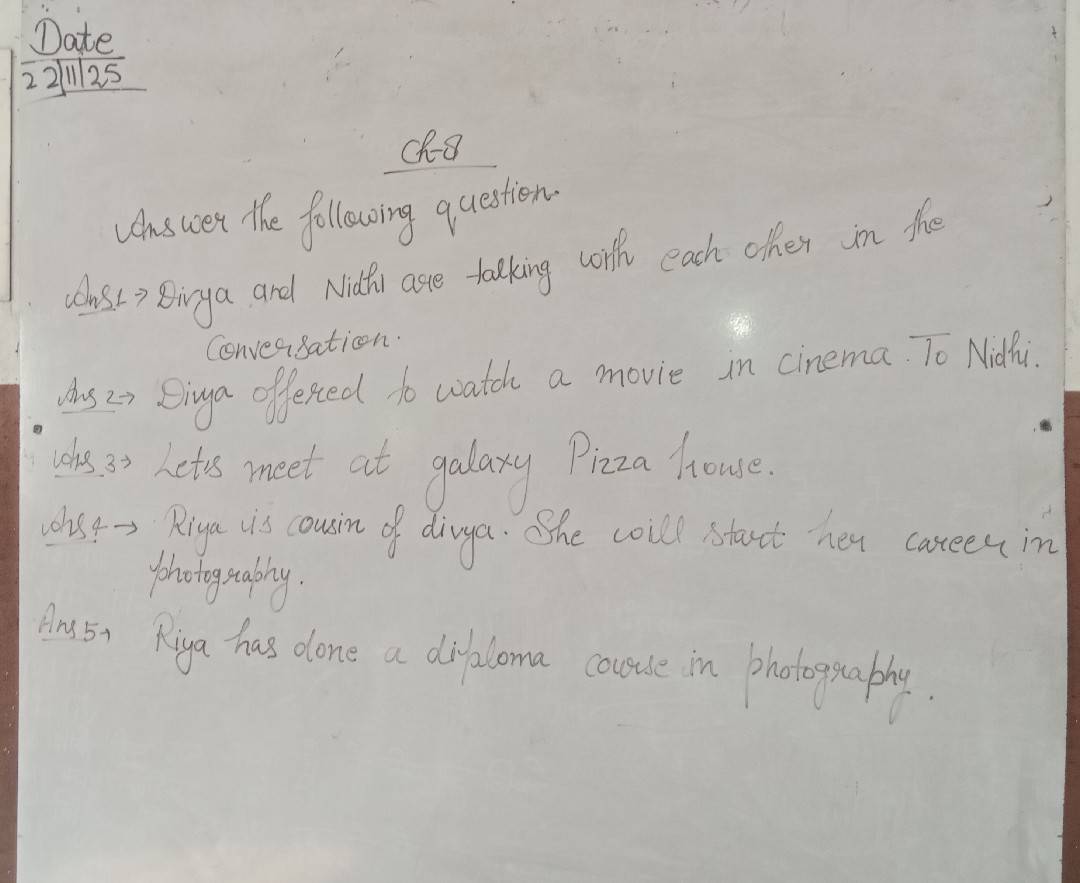 Date
22/11/25
Ch-8
Answer the following question.
Ans1→ Divya and Nidhi are talking with each other in the
Conversation.
Ans 2→ Divya offered to watch a movie in cinema. To Nidhi.
Ans 3→ Let's meet at galaxy Pizza house.
Ans 4→ Riya is cousin of divya. She will start her career in
photography.
Ans 5→ Riya has done a diploma course in photography.